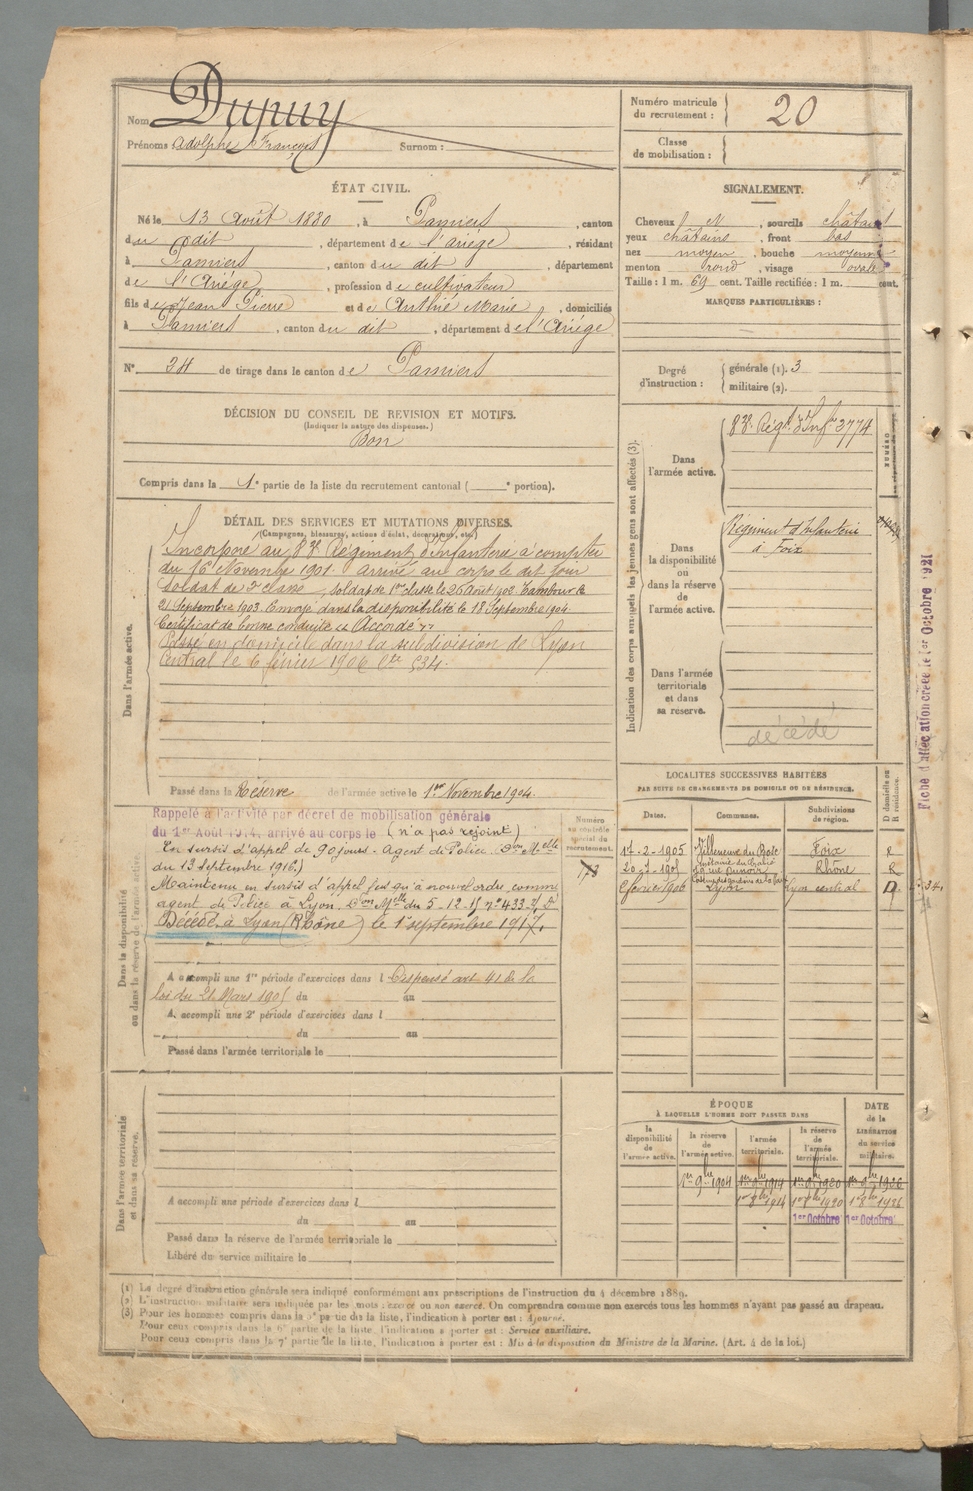 Nom Dupuy
Prénoms Adolphe François Surnom :
Numéro matricule du recrutement : 20
Classe de mobilisation :
ÉTAT CIVIL.
Né le 13 Août 1880, à Pamiers, canton
du dit, département de l'Ariége, résidant
à Pamiers, canton du dit, département
de l'Ariége, profession de cultivateur
fils de Jean Pierre et de Authié Marie, domiciliés
à Pamiers, canton du dit, département de l'Ariége
N° 34 de tirage dans le canton de Pamiers
SIGNALEMENT.
Cheveux et, sourcils châtains
yeux châtains, front bas
nez moyen, bouche moyenne
menton rond, visage ovale
Taille : 1 m. 69 cent. Taille rectifiée : 1 m. cent.
MARQUES PARTICULIÈRES :
Degré d'instruction : générale (1). 3
militaire (2).
DÉCISION DU CONSEIL DE REVISION ET MOTIFS.
(Indiquer la nature des dispenses.)
Bon
Compris dans la 1e partie de la liste du recrutement cantonal ( e portion).
DÉTAIL DES SERVICES ET MUTATIONS DIVERSES.
(Campagnes, blessures, actions d'éclat, décorations, etc.)
Dans l'armée active.
Incorporé au 88e Régiment d'Infanterie à compter
du 16 Novembre 1901. arrivé au corps le dit jour
Soldat de 2e classe, soldat de 1ere classe le 26 Août 1902. Tambour le
21 Septembre 1903. Envoyé dans la disponibilité le 18 Septembre 1904.
Certificat de bonne conduite "Accordé"
Passé en domicile dans la subdivision de Lyon
Central le 6 février 1906
Passé dans la Réserve de l'armée active le 1er Novembre 1904.
Indication des corps auxquels les jeunes gens sont affectés (3).
Dans l'armée active.
88e Régt d'Infie 3774
Dans la disponibilité ou dans la réserve de l'armée active.
Régiment d'Infanterie
à Foix
Dans l'armée territoriale et dans sa reserve.
décédé
Fiche d'affectation créée le 1er Octobre 1921
Dans la disponibilité ou dans la réserve de l'armée active.
Rappelé à l'activité par décret de mobilisation générale
du 1er Août 1914, arrivé au corps le (n'a pas rejoint)
En sursis d'appel de 90 jours - Agent de Police
du 13 septembre 1916.)
Maintenu en sursis d'appel jusqu'à nouvel ordre, comme
agent de Police à Lyon. du 5-12-15 n° 4332
Décédé à Lyon (Rhône) le 1 septembre 1917.
A accompli une 1re période d'exercices dans l Dispensé art. 41 de la
loi du 21 Mars 1905 du au
A accompli une 2e période d'exercices dans l
du au
Passé dans l'armée territoriale le
Numéro au contrôle spécial du recrutement.
LOCALITÉS SUCCESSIVES HABITÉES
PAR SUITE DE CHANGEMENTS DE DOMICILE OU DE RÉSIDENCE.
Dates. Communes. Subdivisions de région. D domicile ou R résidence.
17-2-1905 Villeneuve du Bosc Foix R
Rhône R
6 février 1906 Lyon Lyon central D
Dans l'armée territoriale et dans sa réserve.
A accompli une période d'exercices dans l
du au
Passé dans la réserve de l'armée territoriale le
Libéré du service militaire le
ÉPOQUE
À LAQUELLE L'HOMME DOIT PASSER DANS
DATE de la LIBÉRATION du service militaire.
la disponibilité de l'armée active. la réserve de l'armée active. l'armée territoriale. la réserve de l'armée territoriale.
1er 9bre 1904 1er 9bre 1914 1er 9bre 1920 1er 9bre 1926
1er 8bre 1914 1er 8bre 1920 1er 8bre 1926
1er Octobre 1er Octobre
(1) Le degré d'instruction générale sera indiqué conformément aux prescriptions de l'instruction du 4 décembre 1889.
(2) L'instruction militaire sera indiquée par les mots : exercé ou non exercé. On comprendra comme non exercés tous les hommes n'ayant pas passé au drapeau.
(3) Pour les hommes compris dans la 5e partie de la liste, l'indication à porter est : Ajourné.
Pour ceux compris dans la 6e partie de la liste, l'indication à porter est : Service auxiliaire.
Pour ceux compris dans la 7e partie de la liste, l'indication à porter est : Mis à la disposition du Ministre de la Marine. (Art. 4 de la loi.)